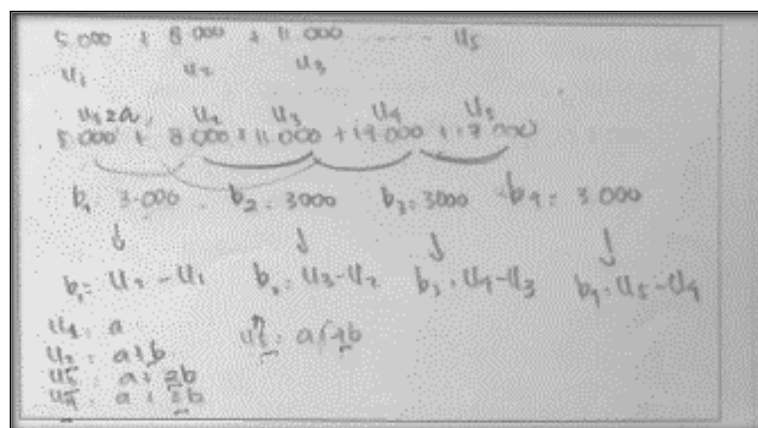 5.000 + 8.000 + 11.000 ...... U5
U1 U2 U3
U1 = a U2 U3 U4 U5
5.000 + 8.000 + 11.000 + 14.000 + 17.000
b1 = 3.000 b2 = 3000 b3 = 3000 b4 = 3.000
b1 = U2 - U1 b2 = U3 - U2 b3 = U4 - U3 b4 = U5 - U4
U1 = a
U5 = a + 4b
U2 = a + b
U3 = a + 2b
U4 = a + 3b